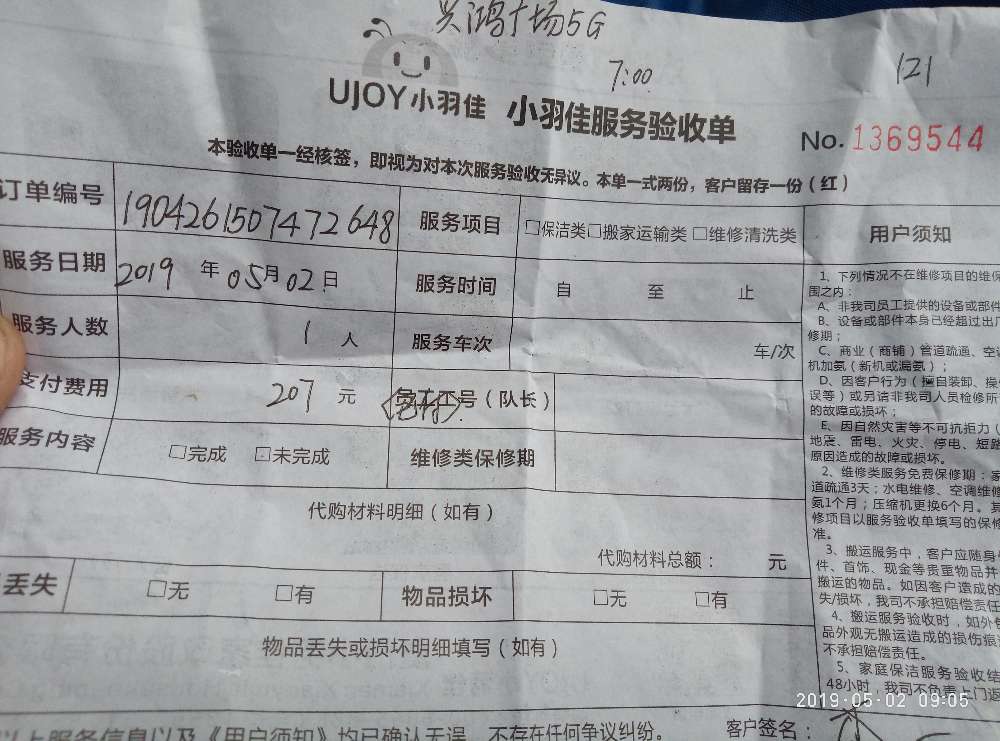 兴鸿广场5G
7:00
121
UJOY小羽佳 小羽佳服务验收单
No. 1369544
本验收单一经核签，即视为对本次服务验收无异议。本单一式两份，客户留存一份（红）
订单编号 1904261507472648 服务项目 □保洁类□搬家运输类 □维修清洗类
服务日期 2019 年 05月 02 日 服务时间 自 至 止
服务人数 1 人 服务车次 车/次
支付费用 207 元 员工工号（队长）
服务内容 □完成 □未完成 维修类保修期
代购材料明细（如有）
代购材料总额： 元
丢失 □无 □有 物品损坏 □无 □有
物品丢失或损坏明细填写（如有）
以上服务信息以及《用户须知》均已确认无误，不存在任何争议纠纷。 客户签名：
用户须知
1、下列情况不在维修项目的维保
围之内：
A、非我司员工提供的设备或部件
B、设备或部件本身已经超出出厂
修期；
C、商业（商铺）管道疏通、空调
机加氨（新机或漏氨）；
D、因客户行为（擅自装卸、操作
误等）或另请非我司人员检修所
的故障或损坏；
E、因自然灾害等不可抗拒力（
地震、雷电、火灾、停电、短路
原因造成的故障或损坏。
2、维修类服务免费保修期：家
道疏通3天；水电维修、空调维修
氨1个月；压缩机更换6个月。其
修项目以服务验收单填写的保修
准。
3、搬运服务中，客户应随身
件、首饰、现金等贵重物品并
搬运的物品。如因客户遗成的
失/损坏，我司不承担赔偿责任
4、搬运服务验收时，如外包
品外观无搬运造成的损伤痕
不承担赔偿责任。
5、家庭保洁服务验收结
48小时，我司不负责上门返
2019-05-02 09:05